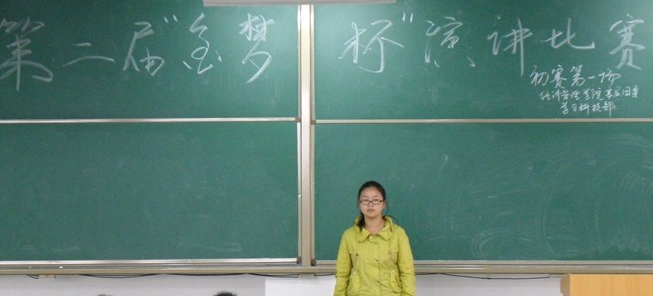 第二届"金梦杯"演讲比赛
初赛第一场
经济管理学院基层团委
学习科技部